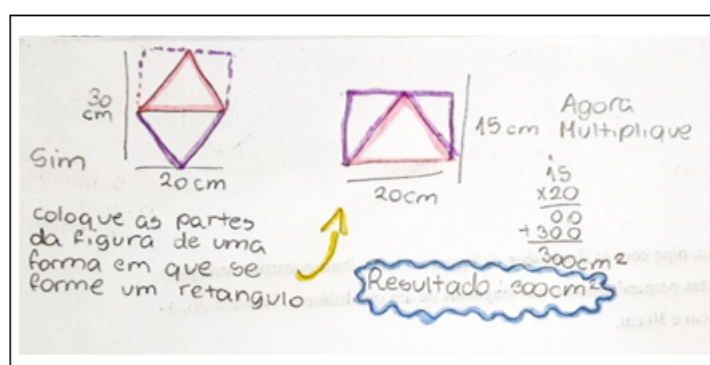 30
cm
Sim
20 cm
coloque as partes
da figura de uma
forma em que se
forme um retangulo
15 cm
20cm
Agora
Multiplique
15
x20
00
+300
300cm²
Resultado: 300cm²